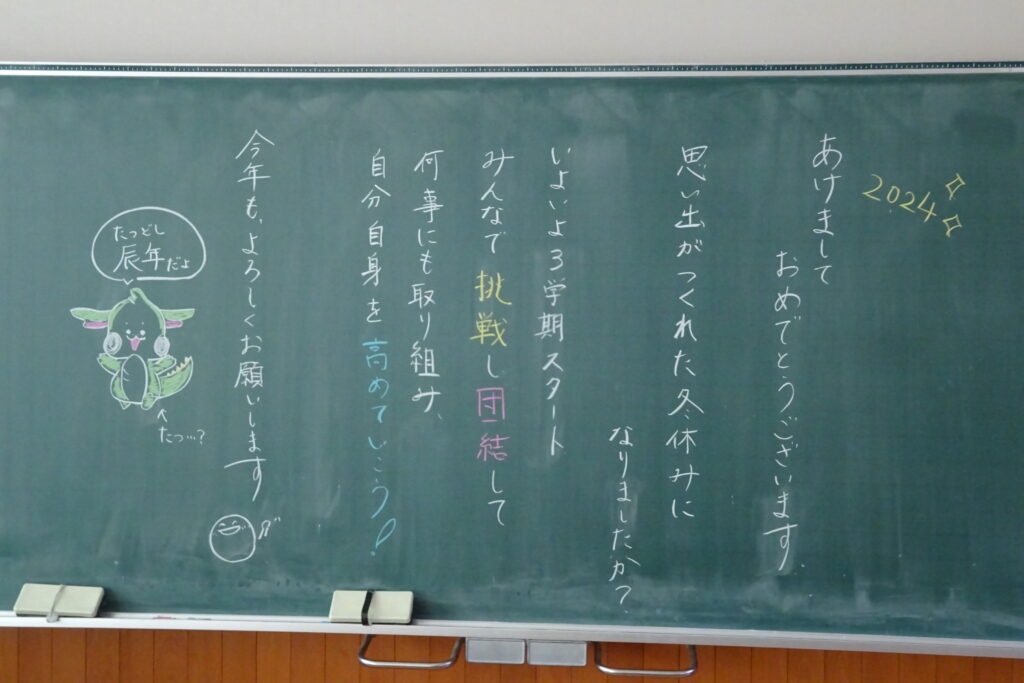 2024
あけまして
おめでとうございます。
思い出がつくれた冬休みに
なりましたか?
いよいよ3学期スタート
みんなで挑戦し団結して
何事にも取り組み、
自分自身を高めていこう!
今年も、よろしくお願いします
たつどし
辰年だよ
たつ…?